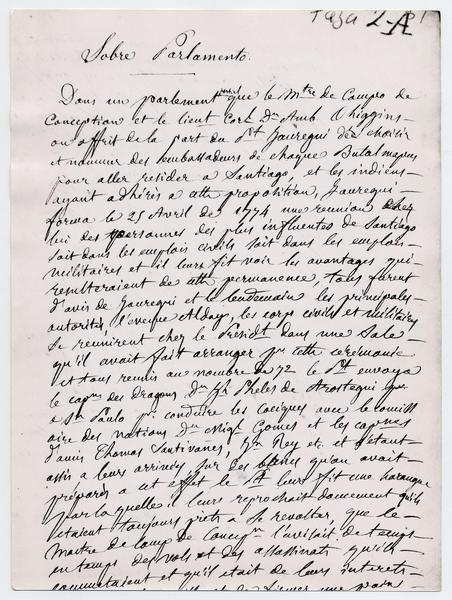 Taza 2-A
Sobre Parlamento.
Dans un parlement que le Mtre de Campo de
Conception et le lieut Corl Dn Amb. O higgins
on offrit de la part du Pt Jauregui de choisir
et nommer des Embassadeurs de chaque Butal mapus
pour aller resider a Santiago, et les indiens
ayant adhérés a cette proposition, Jauregui
forma le 25 Avril de 1774 une reunion chez
lui des personnes des plus influentes de Santiago
soit dans les emplois civils soit dans les emplois
militaires et il leurs fit voir les avantages qui
resulteraient de cette permanence, tous furent
d'avis de Jauregui et le lendemain les principales
autorités, l'eveque Alday, les corps civils et militaires
se reunirent chez le Presidt dans une Sale
qu'il avait fait arranger pr cette ceremonie
et tous reunis au nombre de 72 le Pt envoya
le capne des Dragons Dn Pheles de Arostegui
e Sn Paulo pr conduire les Caciques avec le comiss
aire des nations Dn Migl Gomes et les capnes
d'amis Thomas Santivañes, Rey et. et s'etant
assis a leur arrivées, sur des bancs qu'on avait
préparés a cet effet le Pt leur fit une harangue
par laquelle il leurs reprochait doucement qu'ils
etaient toujours prets a se revolter, que le
Maitre de Camp de Concepn l'avisait de temps
en temps des vols et des assassinats qu'ils
commettaient et qu'il etait de leurs interets